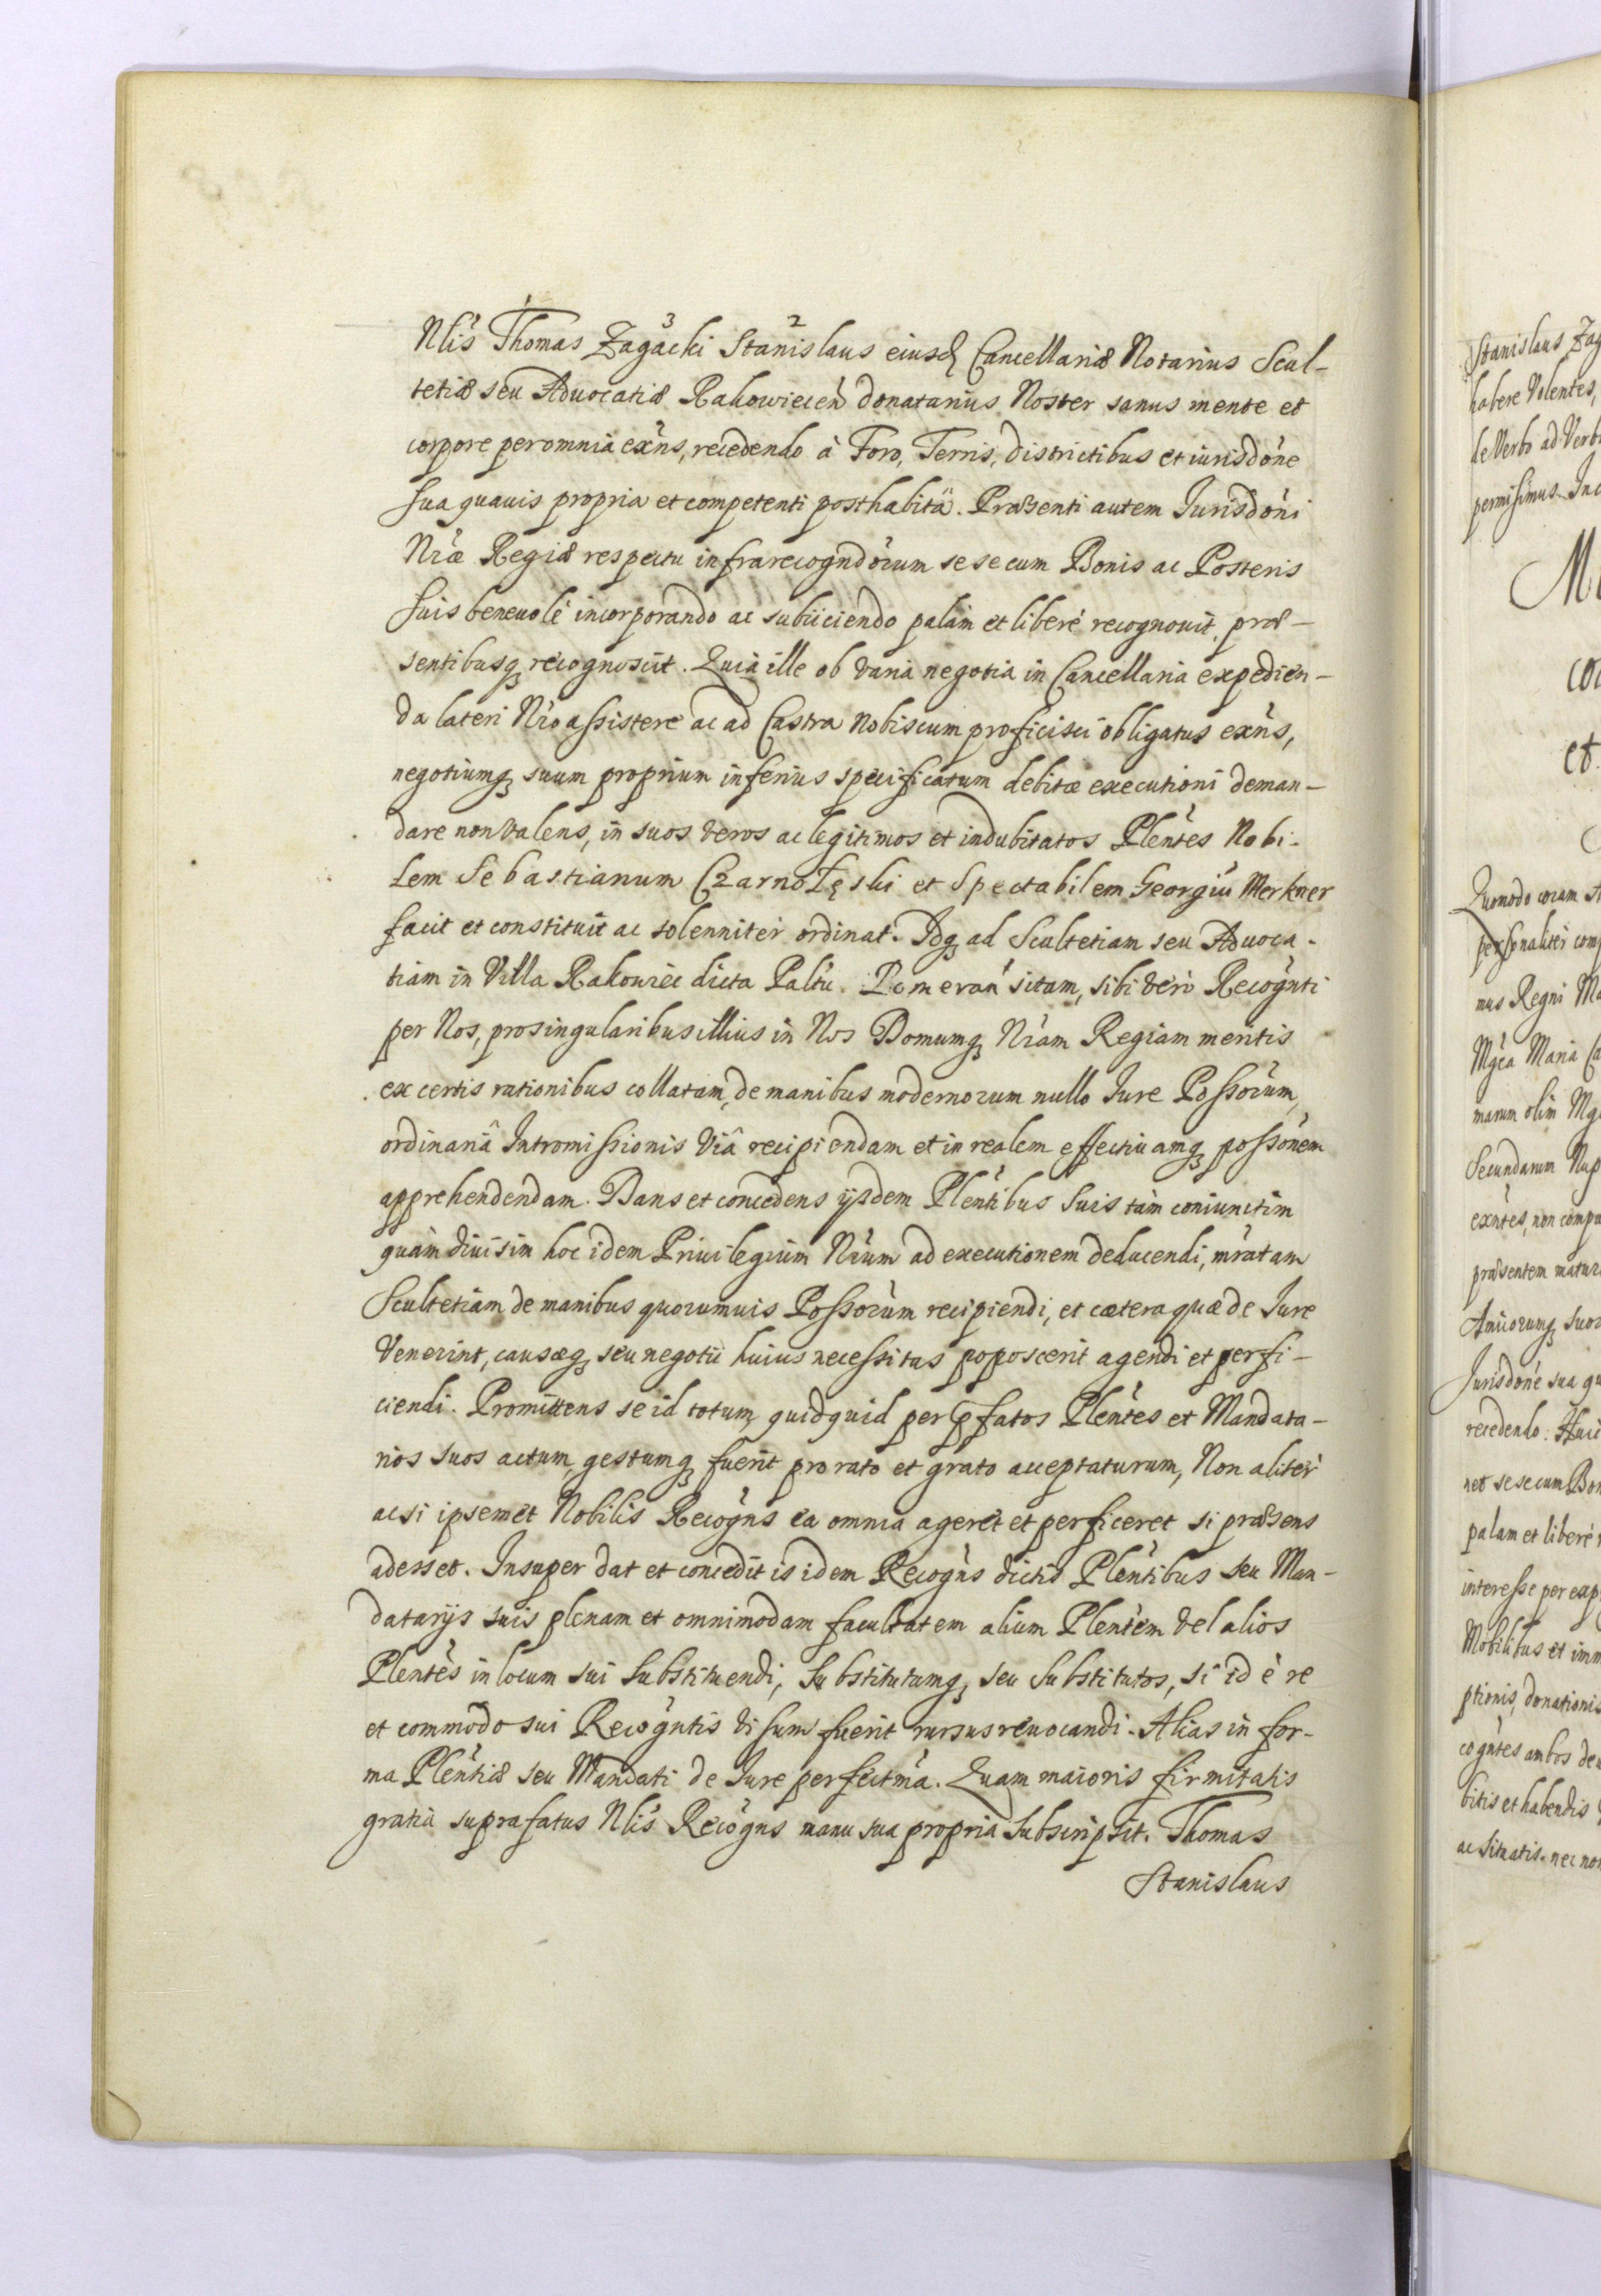 Nlis Thomas Zagacki Stanislaus eiusd Cancellariæ Notarius Scul-
tetiæ seu Aduocatiæ Rakowiecen donatarius Noster sanus mente et
corpore per omnia exns, recedendo à Foro, Terris, districtibus et iurisdone
sua quauis propria et competenti posthabitâ. Præsenti autem Jurisdoni
Nræ Regiæ respectu infrarecogndorum se se cum Bonis ac Posteris
suis beneuolè incorporando ac subiiciendo palàm et liberè recognouit, præ-
sentibusq recognoscit. Quia ille ob varia negotia in Cancellaria expedien-
da lateri Nro assistere ac ad Castra nobiscum proficisci obligatus exns,
negotiumq suum proprium inferius specificatum debitæ executioni deman-
dare non valens, in suos veros ac legitimos et indubitatos Plentes Nobi-
lem Sebastianum Czarnołęski et Spectabilem Georgiu Merkner
facit et constituit ac solenniter ordinat. Idq ad Scultetiam seu Aduoca-
tiam in Villa Rakowiec dicta Paltu. Pomeran sitam, sibi verò Recognti
per Nos, pro singularibus illius in Nos Domumq Nram Regiam meritis
ex certis rationibus collatam, de manibus modernorum nullo Jure Possorum,
ordinariâ Intromissionis viâ recipiendam et in realem effectiuamq possonem
apprehendendam. Dans et concedens ijsdem Plentibus suis tàm coniunctim
quàm diuisim hoc idem Priuilegium Nrum ad executionem deducendi, mratam
Scultetiam de manibus quorumuis Possorum recipiendi, et cætera quæ de Jure
venerint, causæq seu negotii huius necessitas poposcerit agendi et perfi-
ciendi. Promittens se id totum, quidquid per pfatos Plentes et Mandata-
rios suos actum, gestumq fuerit pro rato et grato acceptaturum, Non aliter
ac si ipsemet Nobilis Recogns ea omnia ageret et perficeret si præsens
adesset. Insuper dat et concedit is idem Recogns dictis Plentibus seu Man-
datarijs suis plenam et omnimodam facultatem alium Plentem vel alios
Plentes in locum sui substituendi, substitutumq, seu substitutos, si id è re
et commodo sui Recogntis visum fuerit rursus reuocandi. Alias in for-
ma Plentiæ seu Mandati de Jure perfectma. Quam maioris firmitatis
gratia suprafatus Nlis Recogns manu sua propria subscripsit. Thomas
Stanislaus
Stanislaus Zag
habere volentes,
de Verbo ad Verb
permisimus. In
M
co
et
Quomodo coram
personaliter com
nus Regni Ma
Mgca Maria Ca
marum olim Mg
Secundarum Nup
exntes, non compu
præsentem matur
Amicorumq suor
Jurisdone sua qu
recedendo. Huic
net se se cum Bon
palam et liberè
interesse per exp
Mobilibus et imm
ptionis, donationis
cogntes ambos de
bitis et habendis
ac situatis. nec non